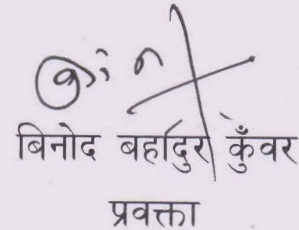 बिनोद बहादुर कुँवर
प्रवक्ता